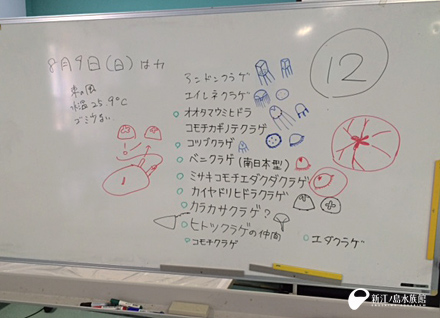 8月9日(日)はれ
東の風
水温25.9℃
ゴミ少ない
12
アンドンクラゲ
エイレネクラゲ
オオタマウミヒドラ
コモチカギノテクラゲ
コツブクラゲ
ベニクラゲ(南日本型)
ミサキコモチエダクダクラゲ
カイヤドリヒドラクラゲ
カラカサクラゲ?
ヒトツクラゲの仲間
コモチクラゲ
エダクラゲ
新江ノ島水族館